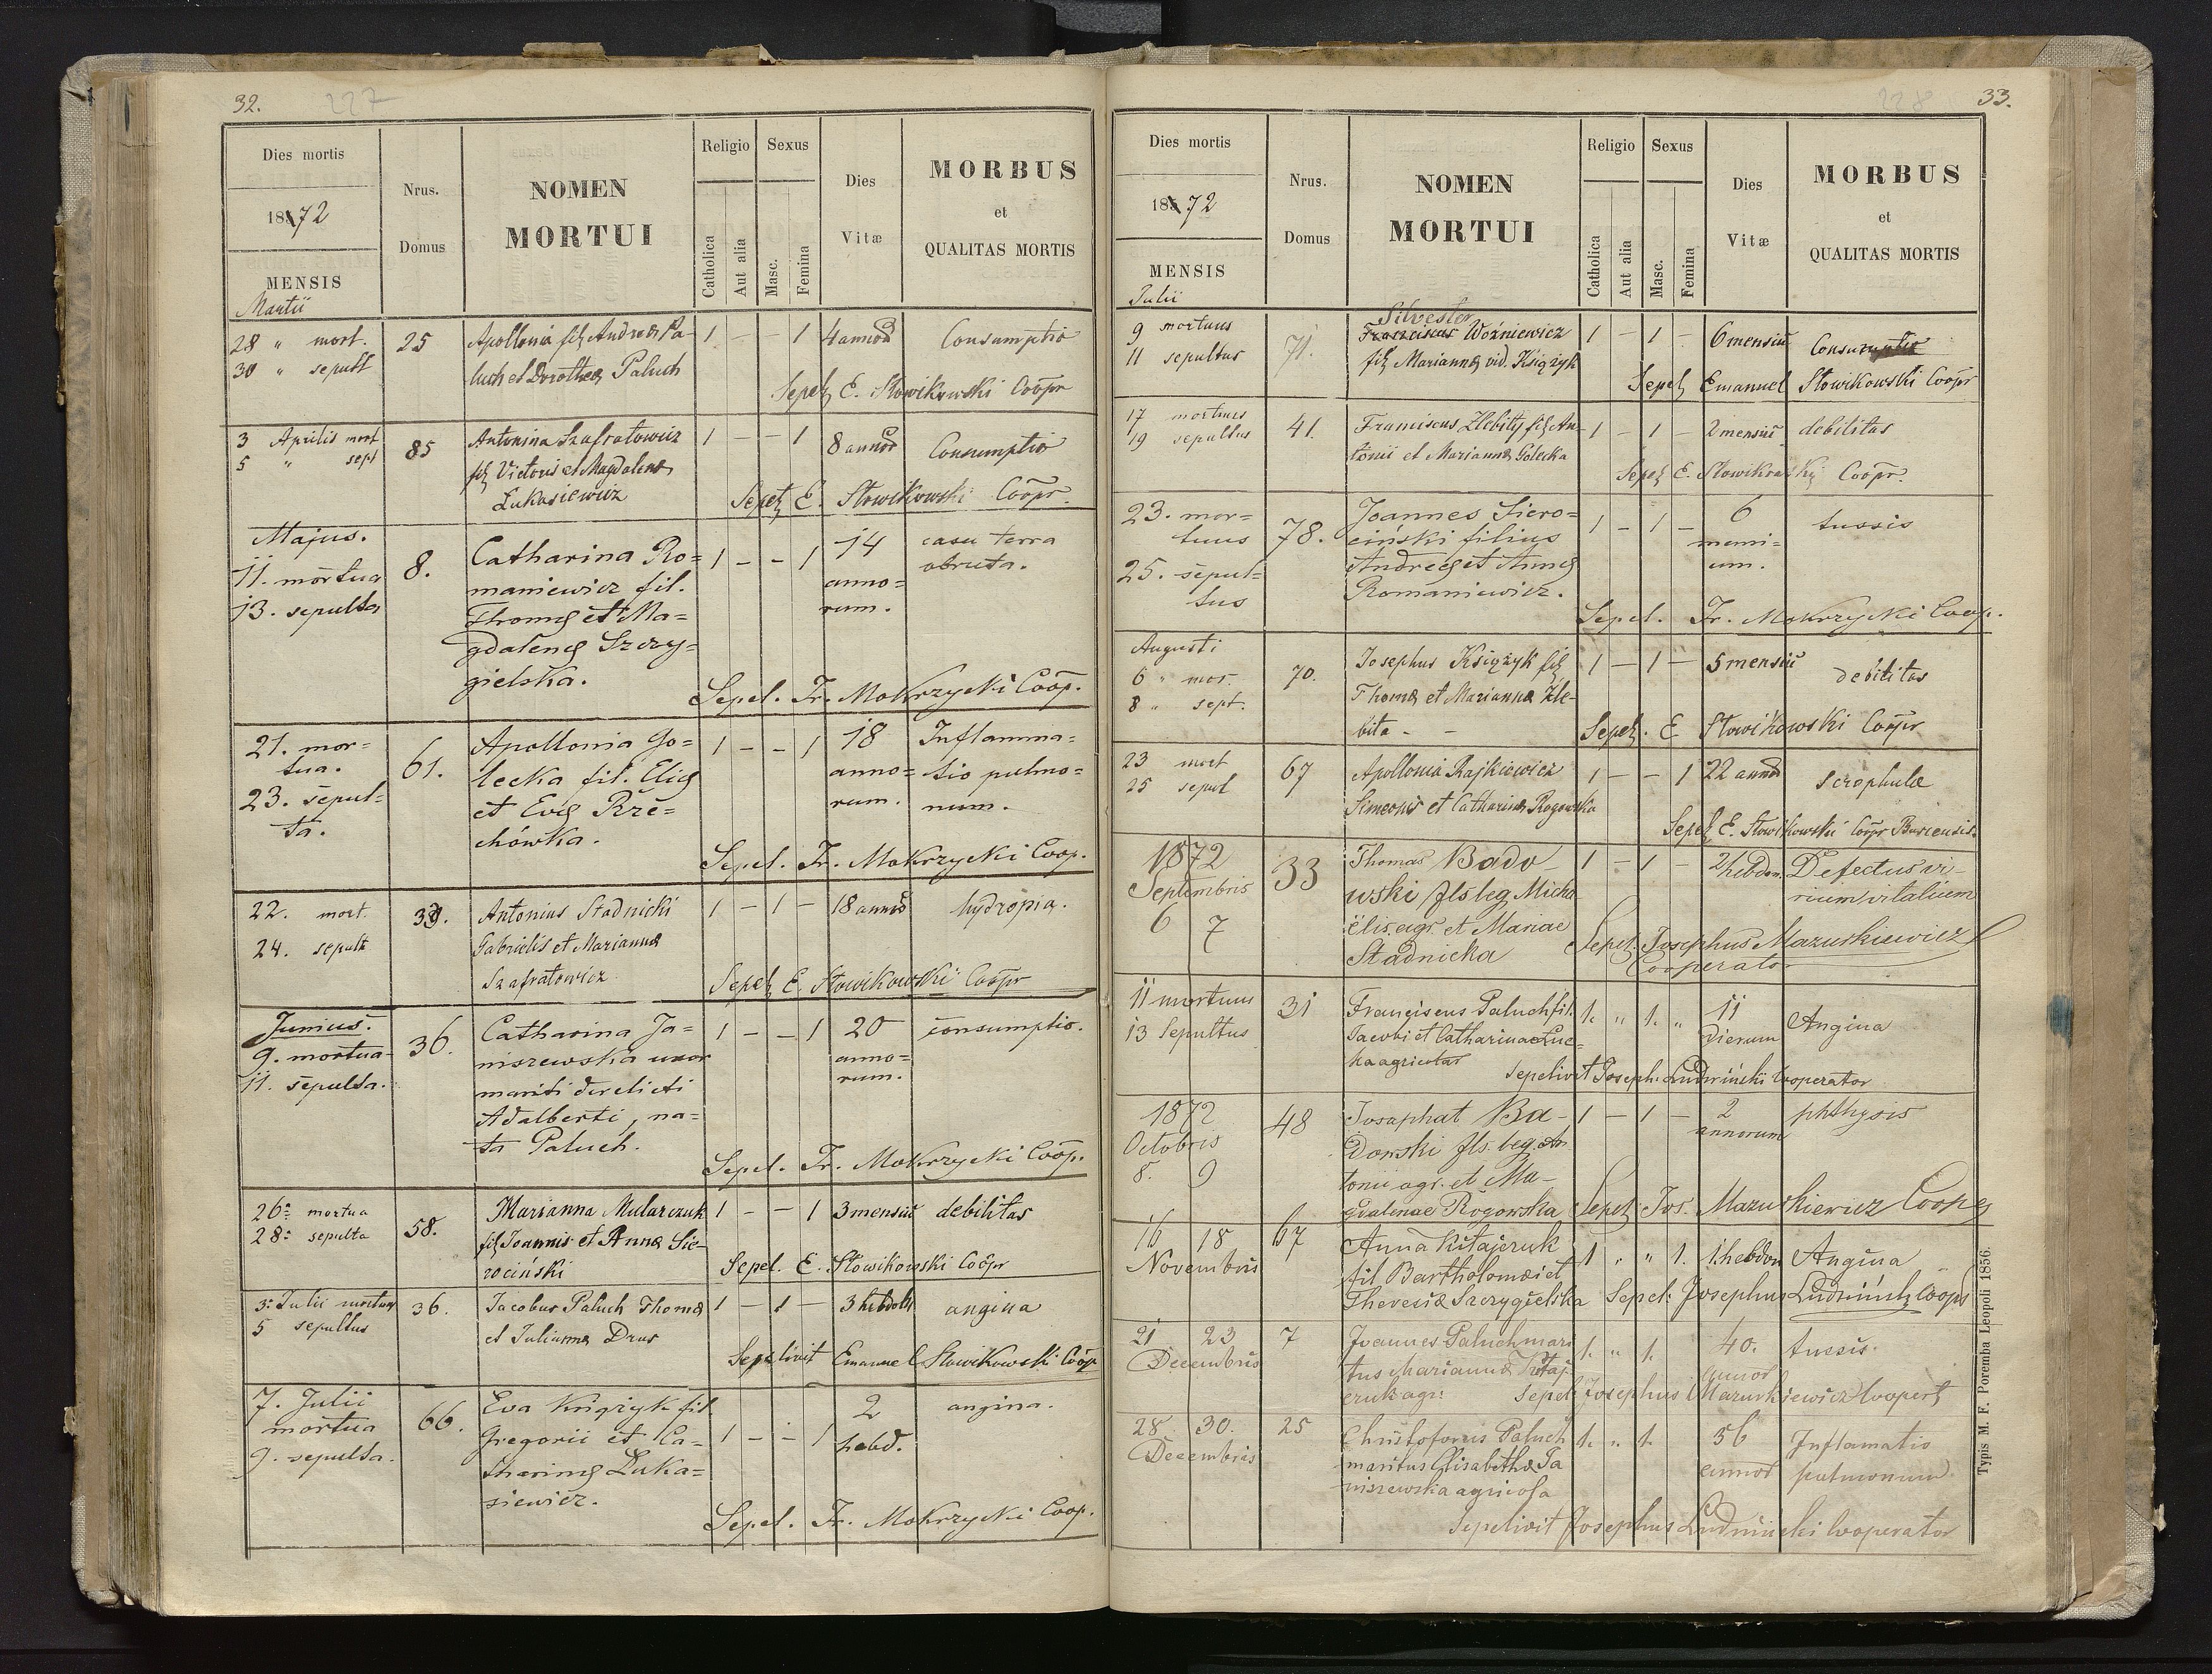 32. 227
Dies mortis
1872
MENSIS
Martii
Nrus.
Domus
NOMEN
MORTUI
Religio
Catholica
Aut alia
Sexus
Masc.
Femina
Dies
Vitæ
MORBUS
et
QUALITAS MORTIS
28 " mort. 25 Apollonia fil Andreæ Pa- 1 — 1 4 annor Consumptio
30 " sepult luch et Dorotheæ Paluch
Sepel E. Słowikowski Coopr
3 Aprilis mort 85 Antonina Szafratowicz 1 — — 1 8 annor Consumptio
5 " sept fil Victoris et Magdalena
Łukasiewicz Sepel E. Słowikowski Coopr.
Majus. 14 casu terra
11. mortua 8. Catharina Ro= 1 — — 1 anno= obruta.
13. sepulta maniewicz fil. rum.
Thomæ et Ma=
gdalenæ Szczy=
gielska. Sepel. Fr. Mokrzycki Coop.
21. mor= 61. Apollonia Go= 1 — — 1 18 Inflamma=
tua. lecka fil. Eliæ anno= tio pulmo=
23. sepul= et Evæ Rze= rum. num.
ta. chówka.
Sepel. Fr. Mokrzycki Coop.
22. mort. Antonius Stadnicki 1 — 1 — 18 annor hydropia.
24. sepult Gabrielis et Mariannæ
Szafratowicz Sepel E. Słowikowski Coopr
Junius. 36. Catharina Ja= 1 — — 1 20 consumptio.
9. mortua niszewska uxor anno=
11. sepulta. mariti derelicti rum.
Adalberti, na=
ta Paluch. Sepel. Fr. Mokrzycki Coop.
26 mortua 58. Marianna Mularczuk 1 — — 1 3 mensiu debilitas
28 sepulta fil Joannis et Annæ Sie-
rociński Sepel. E. Słowikowski Coopr
3 Julii mortuus 36. Jacobus Paluch Thomæ 1 — 1 — 3 hebdom angina
5 sepultus et Julianna Drus
Sepelivit Emanuel Słowikowski Coop
7. Julii 66. Eva Książyk fil 1 — — 1 2 angina.
mortua Gregorii et Ca= hebd.
9. sepulta. tharinæ Łuka=
siewicz.
Sepel. Fr. Mokrzycki Coop.
228 33.
Dies mortis
1872
MENSIS
Julii
Nrus.
Domus
NOMEN
MORTUI
Religio
Catholica
Aut alia
Sexus
Masc.
Femina
Dies
Vitæ
MORBUS
et
QUALITAS MORTIS
Silvester
9 mortuus 71. Franciscus Woźniewicz 1 — 1 — 6 mensiu Consumptio
11 sepultus fil Mariannæ vid. Książyk
Sepel Emanuel Słowikowski Coopr
17 mortuus 41. Franciscus Zlebity fil An- 1 — 1 — 2 mensiu debilitas
19 sepultus tonii et Mariannæ Golecka
Sepel E. Słowikowski Coopr.
23. mor= 78. Joannes Siero= 1 — 1 — 6 tussis
tuus ciński filius mensi=
25. sepul= Andreæ et Annæ um.
tus Romaniewicz.
Sepel. Fr. Mokrzycki Coop.
Augusti
6 " mor. 70. Josephus Książyk fil 1 — 1 — 5 mensiu debilitas
8 " sept. Thomæ et Mariannæ Zle-
bita - - Sepel. E Słowikowski Coopr
23 mort 67 Apollonia Rajkiewicz 1 — — 1 22 annor scrophulæ
25 sepul Simeonis et Catharinæ Rogowska
Sepel E. Słowikowski Coopr Buscensis.
1872 33 Thomas Bado- 1 — 1 — 2 hebdom. Defectus vi-
Septembris wski fls leg Micha rium vitalium
6 7 ëlis agr. et Mariae
Stadnicka Sepel. Josephus Mazurkiewicz
Cooperator
11 mortuus 31 Franciscus Paluch fil. 1. " 1. " 11 Angina
13 Sepultus Jacobi et Catharinae Łuc= Dierum
ka agricolar Sepelivit Joseph. Ludwiński Cooperator
1872 48 Josaphat Ba- 1 — 1 — 2 phthysis
Octobris Dowski fls. leg. An annorum
8. 9 tonii agr. et Ma-
gdalenae Rogowska Sepel. Jos. Mazurkiewicz Coop
16 18 67 Anna Kitajczuk 1 " " 1. 1. hebdom Angina
Novembris fil Bartholomæi et
Theresiæ Szczygielska Sepel: Josephus Ludwiński Coop
21 23 7 Joannes Paluch mari 1. " 1. 40. tussis.
Decembris tus Mariannæ Kitaj annor
czuk agr: Sepel Josephus Mazurkiewicz Cooper
28 30. 25 Christoforus Paluch 1. " 1. 56 Inflamatio
Decembris maritus Elisabethæ Ja annor pulmonum.
niszewska agricola
Sepelivit Josephus Ludwiński Cooperator
Typis M. F. Poremba Leopoli 1856.